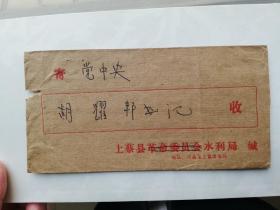 寄 党中央
胡耀邦书记 收
上蔡县革命委员会水利局 缄